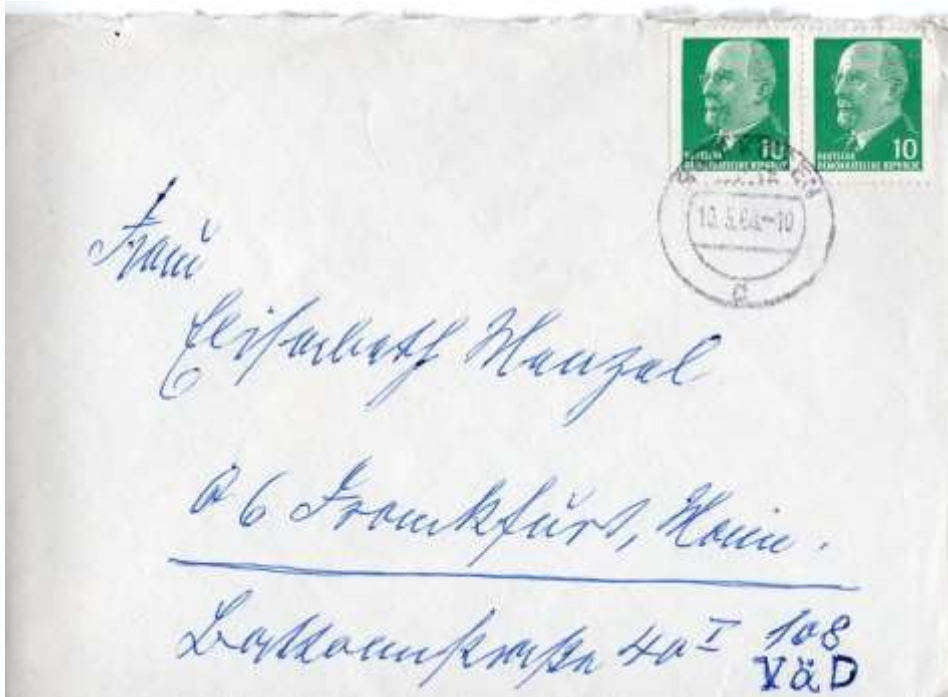 10
DEUTSCHE
DEMOKRATISCHE REPUBLIK
10
DEUTSCHE
DEMOKRATISCHE REPUBLIK
Frau
Elisabeth Menzel
6 Frankfurt, Main.
Battonnstraße 40 I 108
VäD